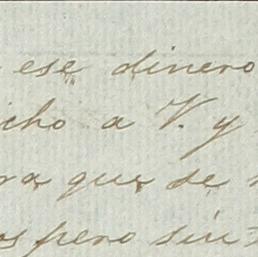 ese dinero
cho a V. y
ra que se
os pero sin